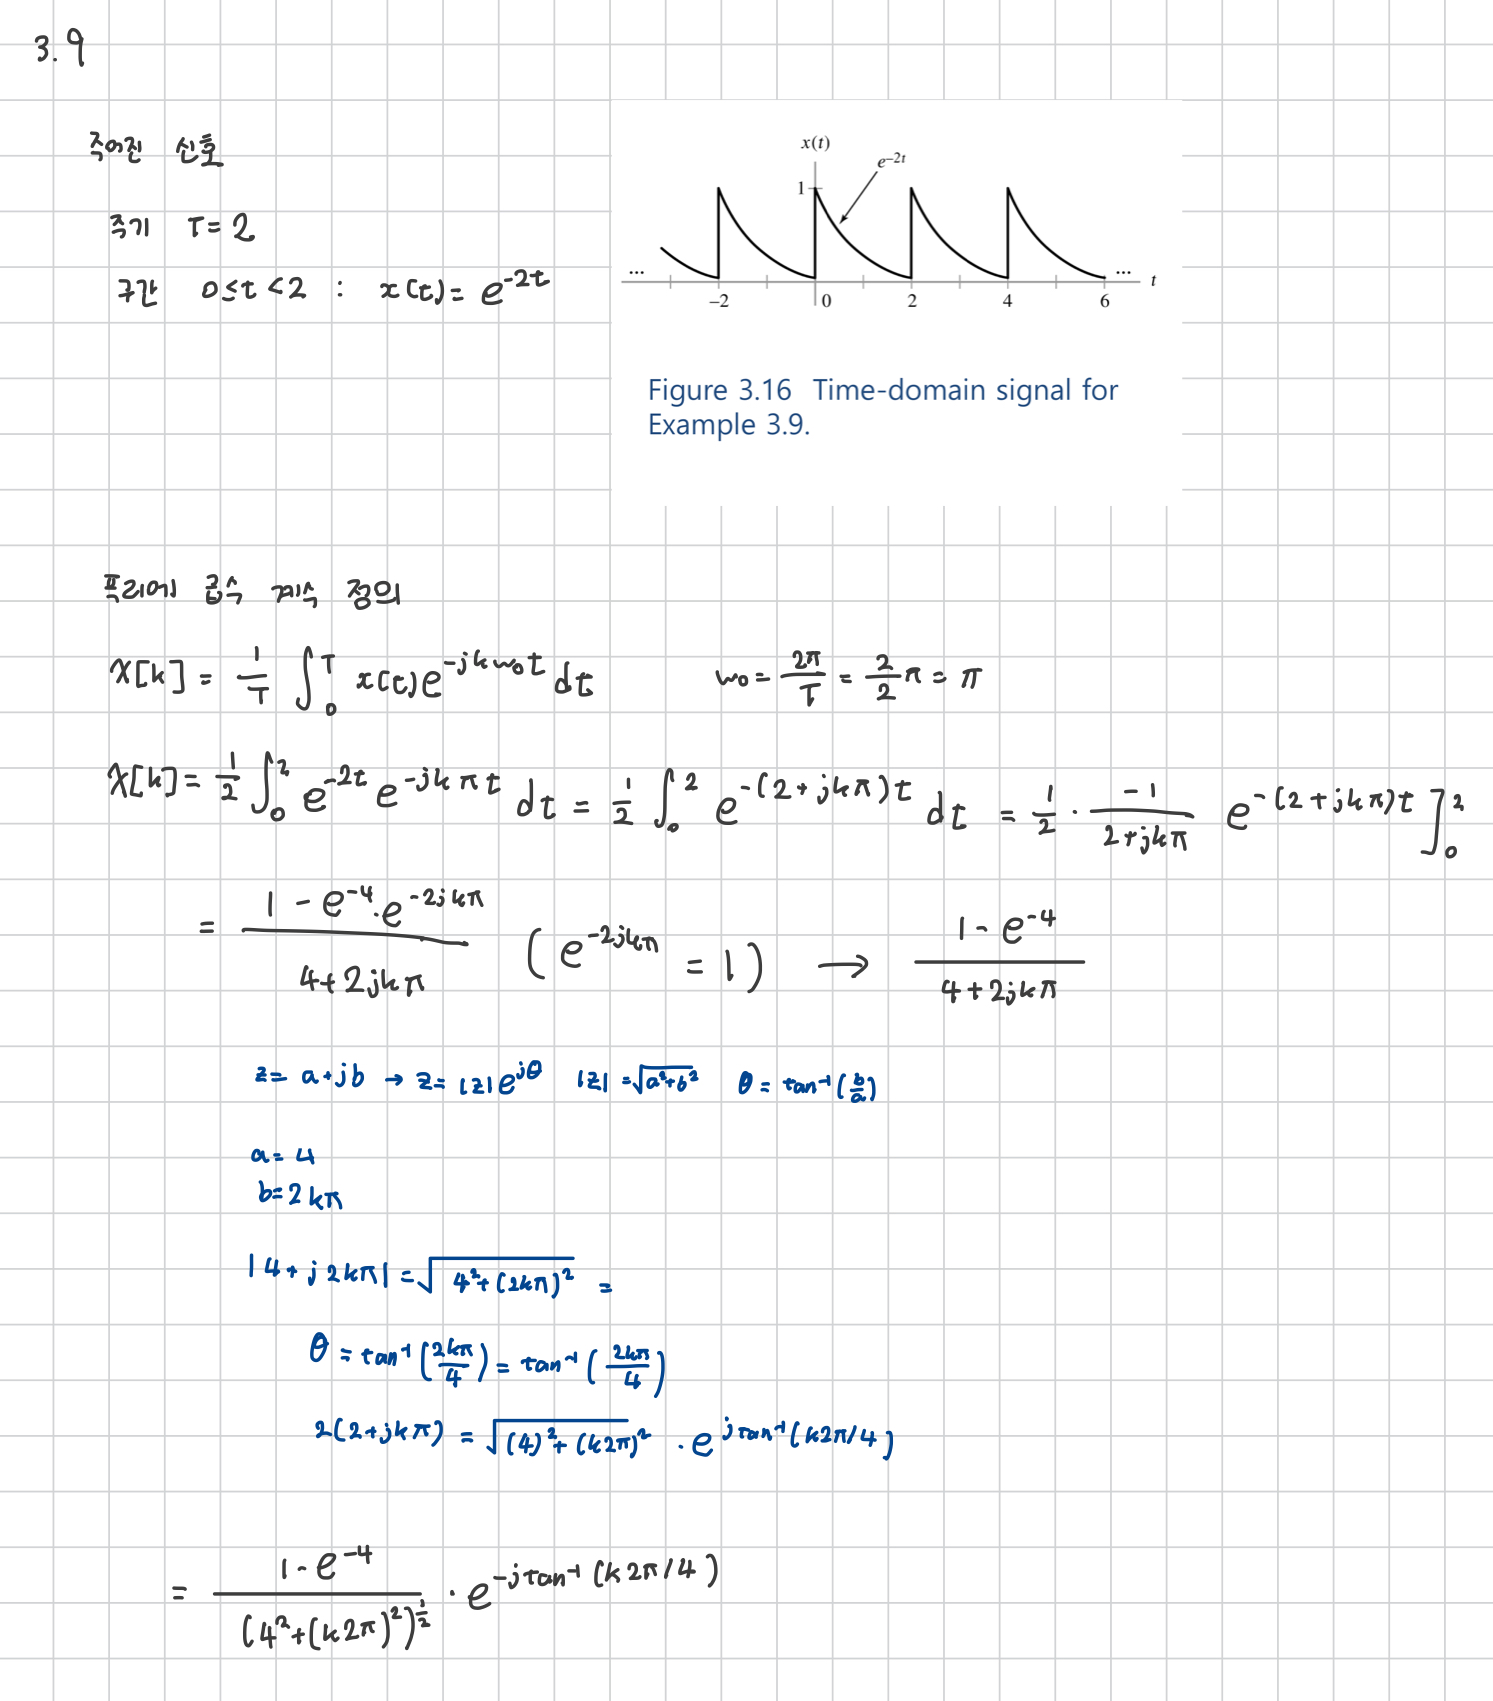 3.9
주어진 신호
주기 T = 2
구간 0 ≤ t < 2 : x(t) = e^{-2t}
x(t)
e^{-2t}
1
... −2 0 2 4 6 ... t
Figure 3.16 Time-domain signal for
Example 3.9.
푸리에 급수 계수 정의
X[k] = \frac{1}{T} ∫_0^T x(t)e^{-jkw_0t} dt w_0 = \frac{2π}{T} = \frac{2}{2}π = π
X[k] = \frac{1}{2} ∫_0^2 e^{-2t} e^{-jkπt} dt = \frac{1}{2} ∫_0^2 e^{-(2+jkπ)t} dt = \frac{1}{2} · \frac{-1}{2+jkπ} e^{-(2+jkπ)t} ]_0^2
= \frac{1 - e^{-4}·e^{-2jkπ}}{4+2jkπ} (e^{-2jkπ} = 1) → \frac{1 - e^{-4}}{4+2jkπ}
z = a+jb → z = |z|e^{jθ} |z| = \sqrt{a^2+b^2} θ = tan^{-1}(\frac{b}{a})
a = 4
b = 2kπ
|4 + j2kπ| = \sqrt{4^2+(2kπ)^2} =
θ = tan^{-1}(\frac{2kπ}{4}) = tan^{-1}(\frac{2kπ}{4})
2(2+jkπ) = \sqrt{(4)^2+(k2π)^2} · e^{jtan^{-1}(k2π/4)}
= \frac{1 - e^{-4}}{(4^2+(k2π)^2)^{\frac{1}{2}}} · e^{-jtan^{-1}(k2π/4)}